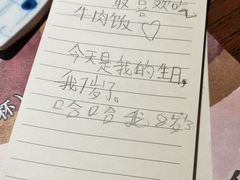 最喜欢吃
牛肉饭♡
今天是我的生日,
我7岁了。
哈哈 我 8岁
杯)